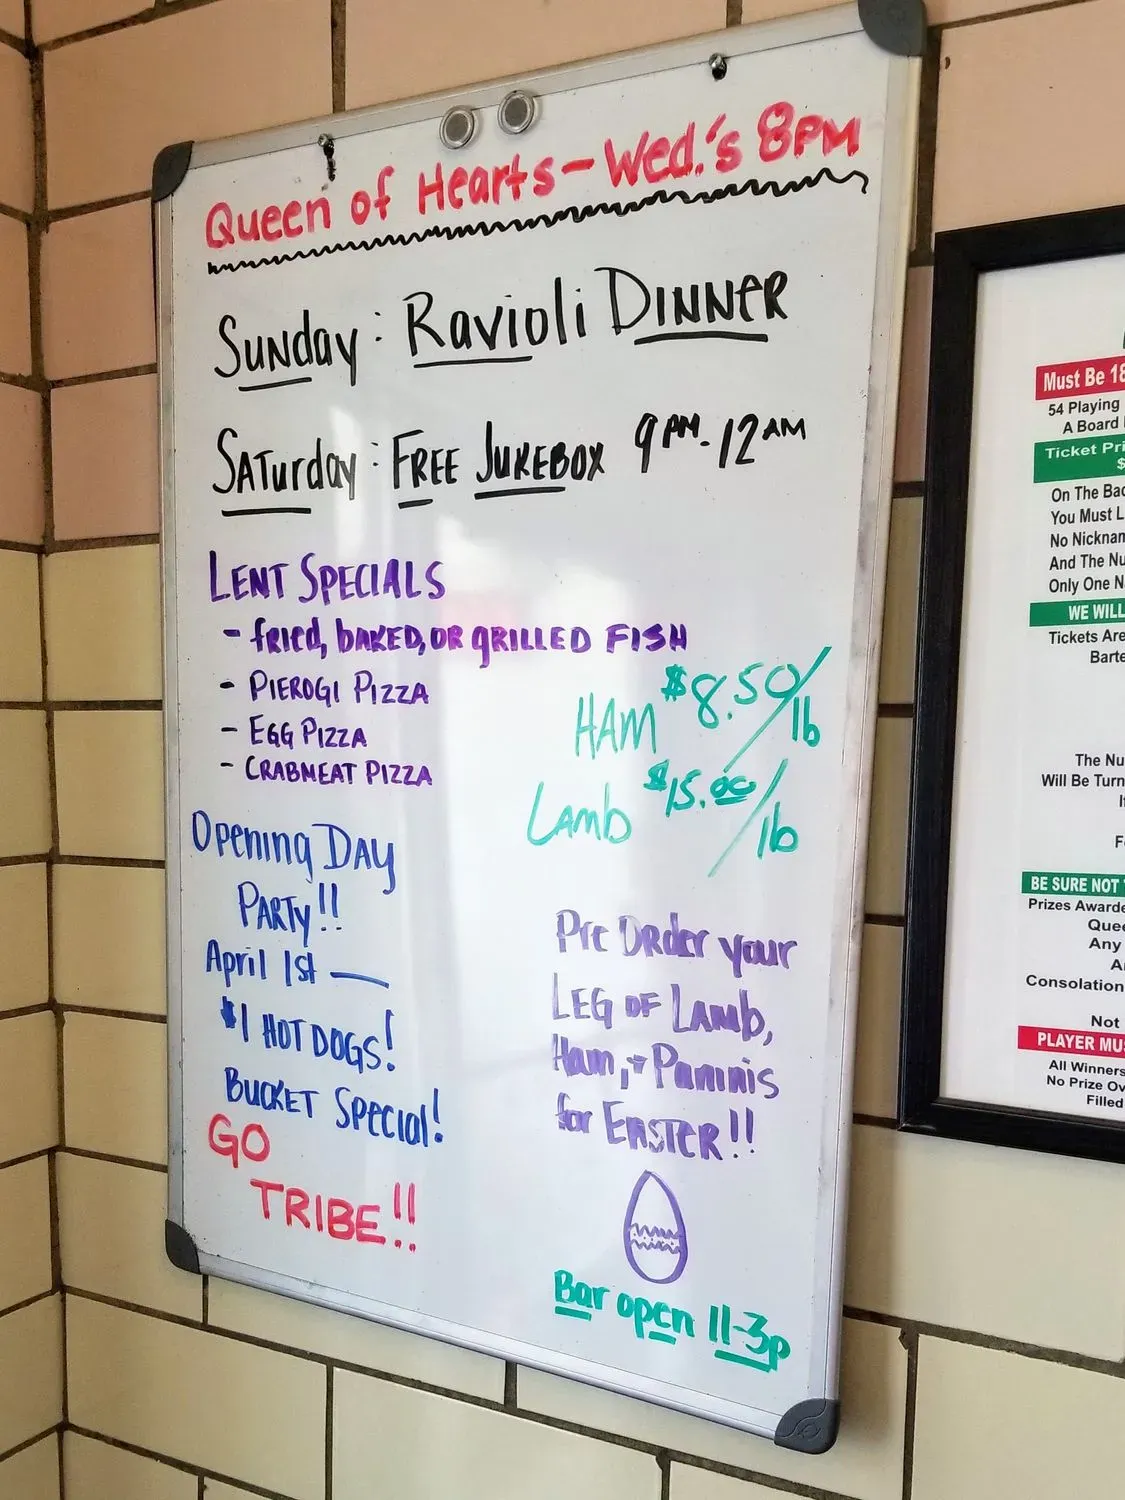 Queen of Hearts - Wed.'s 8PM
Sunday: Ravioli DINNER
SATurday: FREE JUKEBOX 9PM-12AM
LENT SPECIALS
- fried, bAKED, OR gRILLED FISH
- PIEROGI PIZZA
- EGG PIZZA
- CRABMEAT PIZZA
HAM $8.50/lb
LAMb $15.00/lb
Opening DAY
PARTy!!
April 1st —
$1 HOT DOGS!
BUCKET SpEciAl!
GO
TRIBE!!
Pre Order your
LEG OF LAMb,
Ham, + Paninis
for EASTER!!
Bar open 11-3p
Must Be 18
54 Playing
A Board
Ticket Pri
$
On The Bac
You Must L
No Nicknam
And The Nu
Only One N
WE WILL
Tickets Are
Barte
The Nu
Will Be Turn
If
Fo
BE SURE NOT
Prizes Awarde
Quee
Any
Ar
Consolation
Not
PLAYER MUS
All Winners
No Prize Ov
Filled